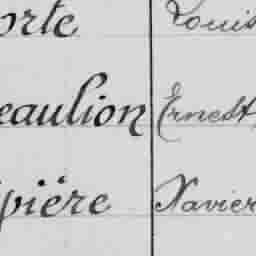 orte Louis
eaulion Ernest
ipière Xavier